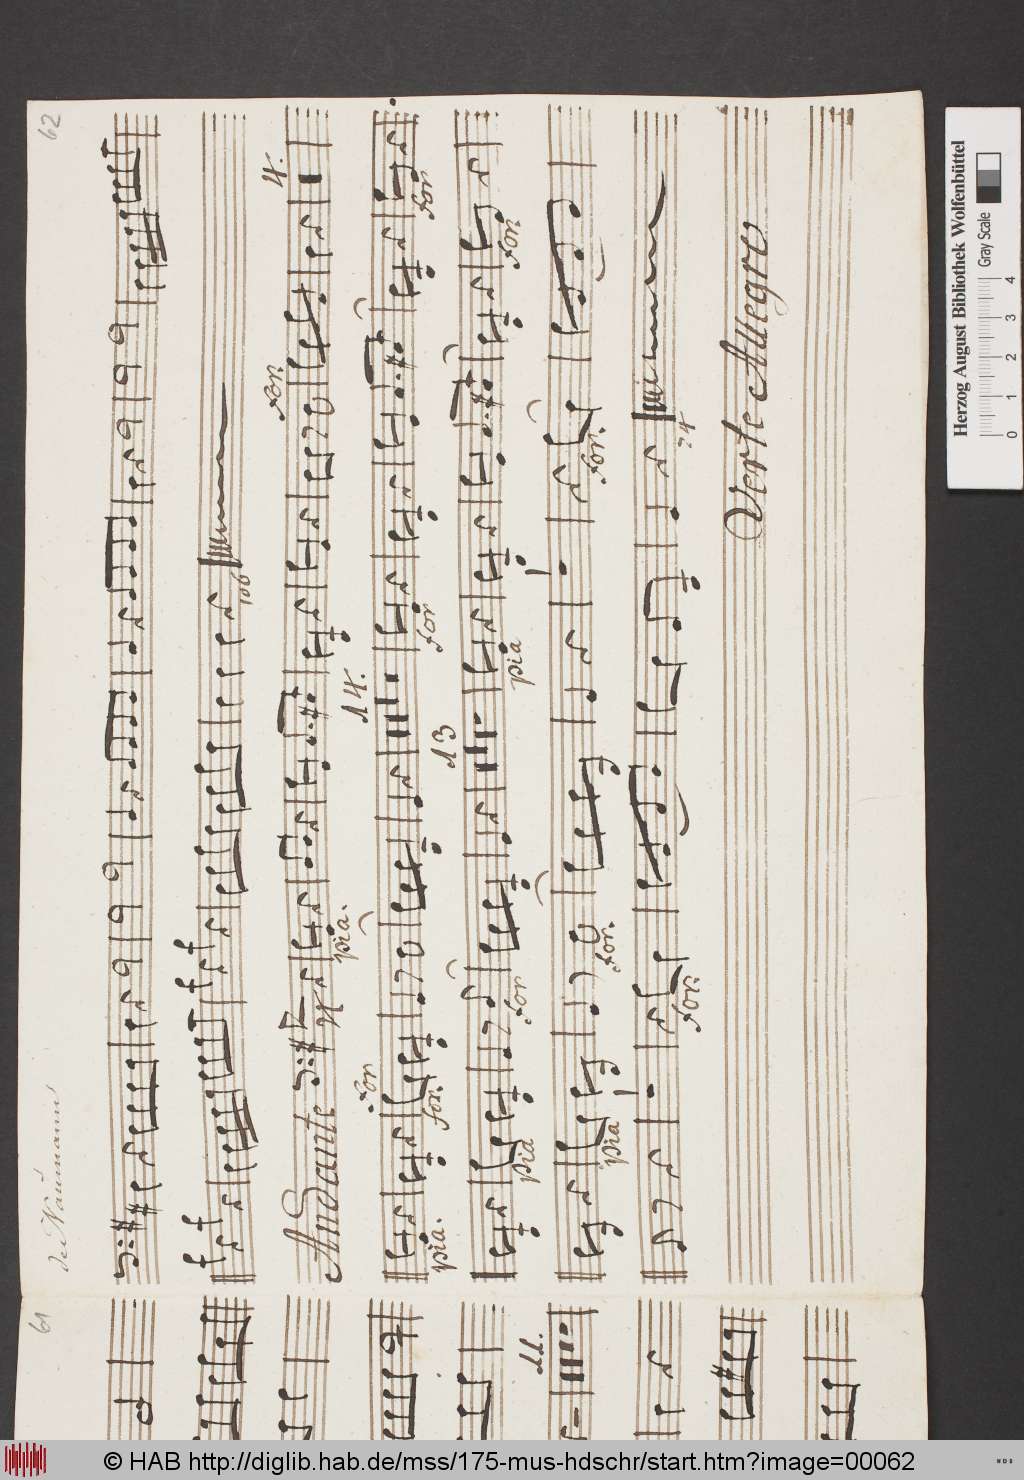 62
del Naumann
106
Andante
pia.
for
4.
pia.
for
for.
14.
for
for
pia
for
13
pia
for
pia
for.
for.
for
24
Verte Allegro
61
11.
Herzog August Bibliothek Wolfenbüttel
Gray Scale
0 1 2 3 4
© HAB http://diglib.hab.de/mss/175-mus-hdschr/start.htm?image=00062